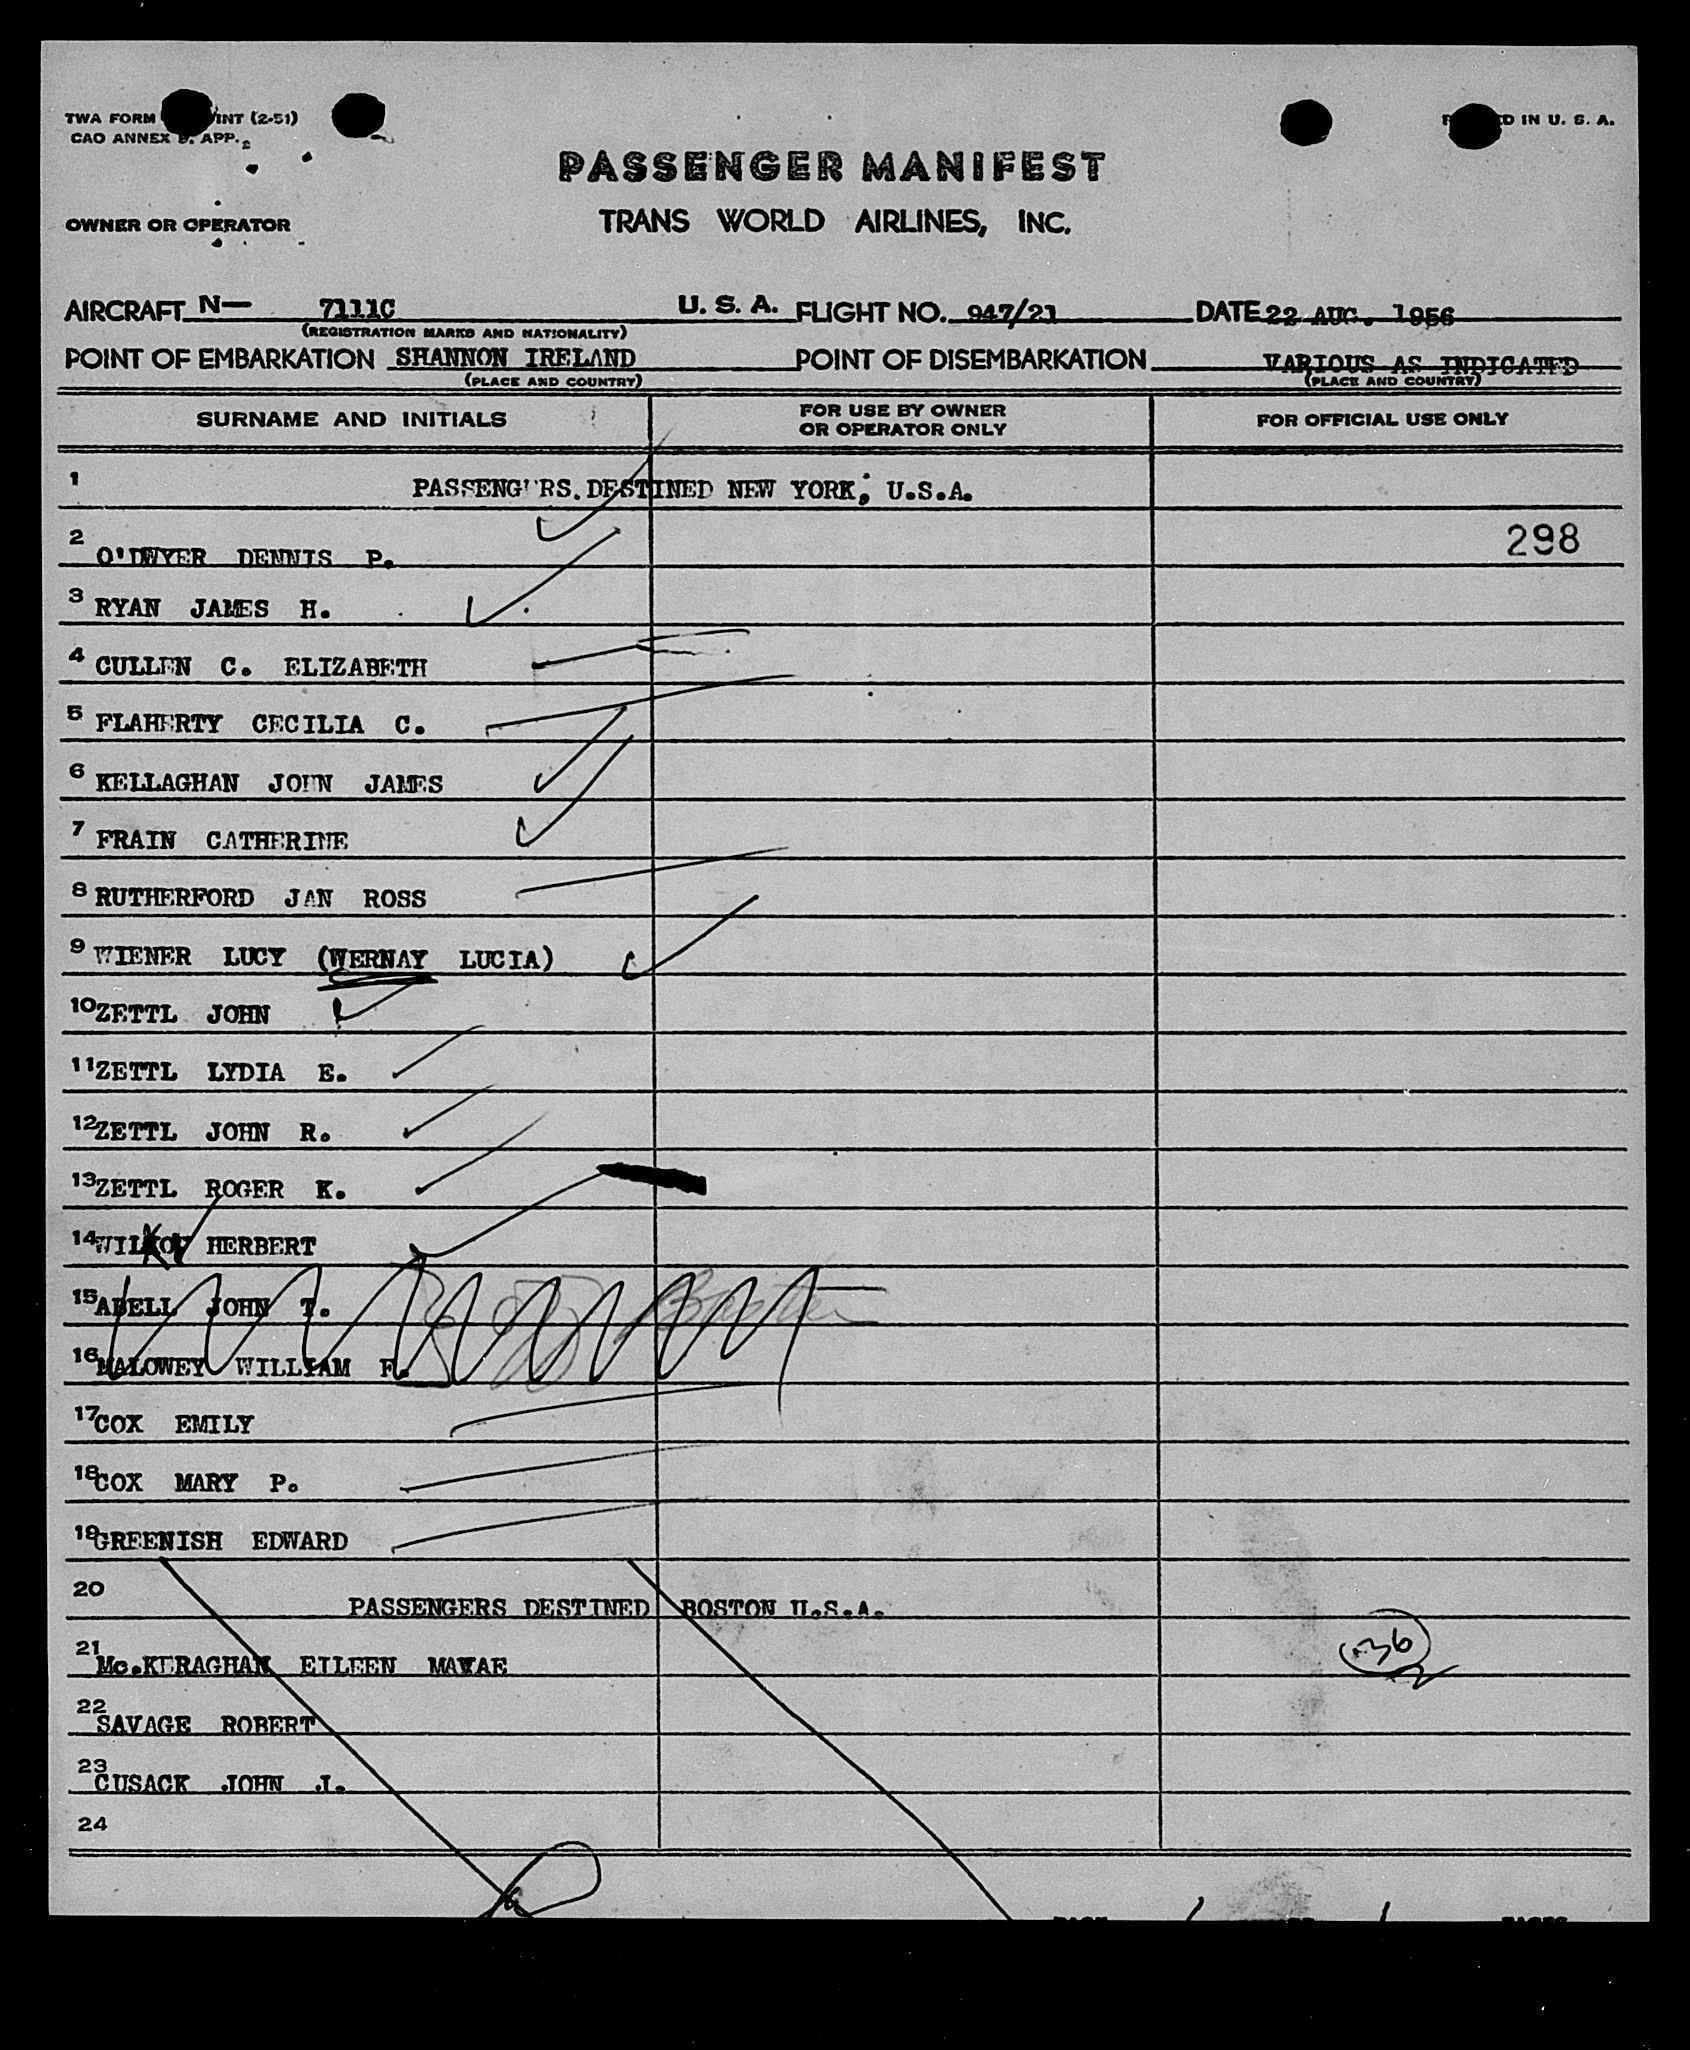 TWA FORM INT (2-51)
CAO ANNEX 9. APP. 2
D IN U. S. A.
PASSENGER MANIFEST
OWNER OR OPERATOR
TRANS WORLD AIRLINES, INC.
AIRCRAFT N— 7111C U. S. A. FLIGHT NO. 947/21 DATE 22 AUG. 1956
(REGISTRATION MARKS AND NATIONALITY)
POINT OF EMBARKATION SHANNON IRELAND POINT OF DISEMBARKATION VARIOUS AS INDICATED
(PLACE AND COUNTRY) (PLACE AND COUNTRY)
SURNAME AND INITIALS FOR USE BY OWNER OR OPERATOR ONLY FOR OFFICIAL USE ONLY
1 PASSENGERS DESTINED NEW YORK, U.S.A.
2 O'DWYER DENNIS P. 298
3 RYAN JAMES H.
4 CULLEN C. ELIZABETH
5 FLAHERTY CECILIA C.
6 KELLAGHAN JOHN JAMES
7 FRAIN CATHERINE
8 RUTHERFORD JAN ROSS
9 WIENER LUCY (WERNAY LUCIA)
10 ZETTL JOHN
11 ZETTL LYDIA E.
12 ZETTL JOHN R.
13 ZETTL ROGER K.
14 HERBERT
15 ABELL JOHN T. Boston
16 MALOWEY WILLIAM F.
17 COX EMILY
18 COX MARY P.
19 GREENISH EDWARD
20 PASSENGERS DESTINED BOSTON U.S.A.
21 Mc.KERAGHAN EILEEN 36
22 SAVAGE ROBERT
23 CUSACK JOHN J.
24